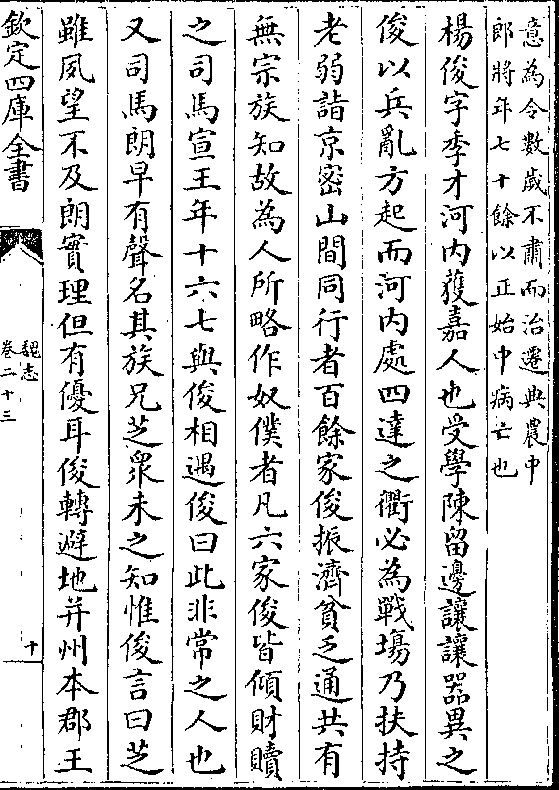 意為令數歲不肅而治遷典農中
郎將年七十餘以正始中病亡也
楊俊字季才河內獲嘉人也受學陳留邊讓讓器異之
俊以兵亂方起而河內處四達之衢必為戰場乃扶持
老弱詣京密山間同行者百餘家俊振濟貧乏通共有
無宗族知故為人所略作奴僕者凡六家俊皆傾財贖
之司馬宣王年十六七與俊相遇俊曰此非常之人也
又司馬朗早有聲名其族兄芝衆未之知惟俊言曰芝
雖夙望不及朗實理但有優耳俊轉避地并州本郡王
欽定四庫全書
魏志
卷二十三
十